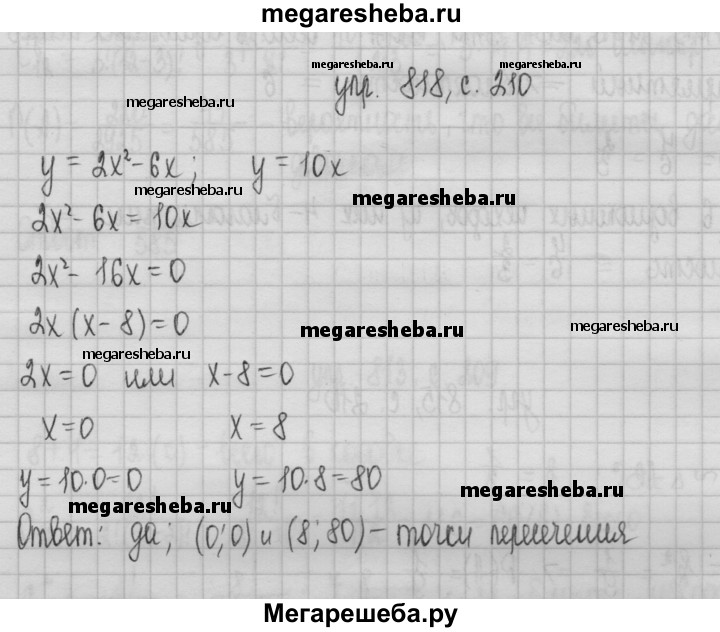 megaresheba.ru
megaresheba.ru megaresheba.ru
упр. 818, с. 210
megaresheba.ru
y = 2x² - 6x ; y = 10x
megaresheba.ru
megaresheba.ru
2x² - 6x = 10x
2x² - 16x = 0
2x (x - 8) = 0
megaresheba.ru
megaresheba.ru
megaresheba.ru
2x = 0 или x - 8 = 0
x = 0 x = 8
y = 10·0 = 0 y = 10·8 = 80
megaresheba.ru
megaresheba.ru
Ответ: да; (0; 0) и (8; 80) - точки пересечения
Мегарешеба.ру